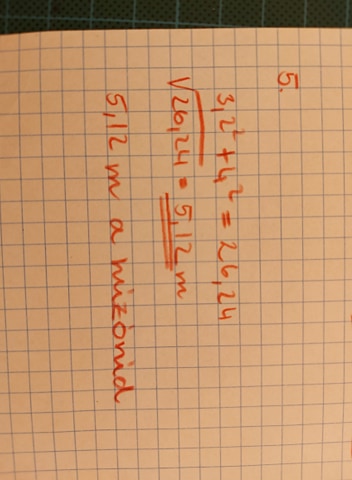 5.
3,2² + 4² = 26,24
√26,24 = 5,12 m
5,12 m a mizónid